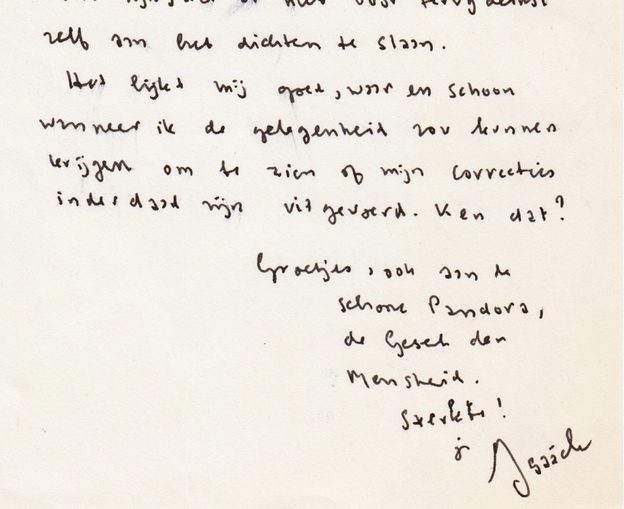 zelf aan het dichten te slaan.
Het lijkt mij goed, waar en schoon
wanneer ik de gelegenheid zou kunnen
krijgen om te zien of mijn correcties
inderdaad zijn uitgevoerd. Kan dat?
Groetjes, ook aan de
schone Pandora,
de Gesel der
Mensheid.
Sterkte!
je
Isaäck